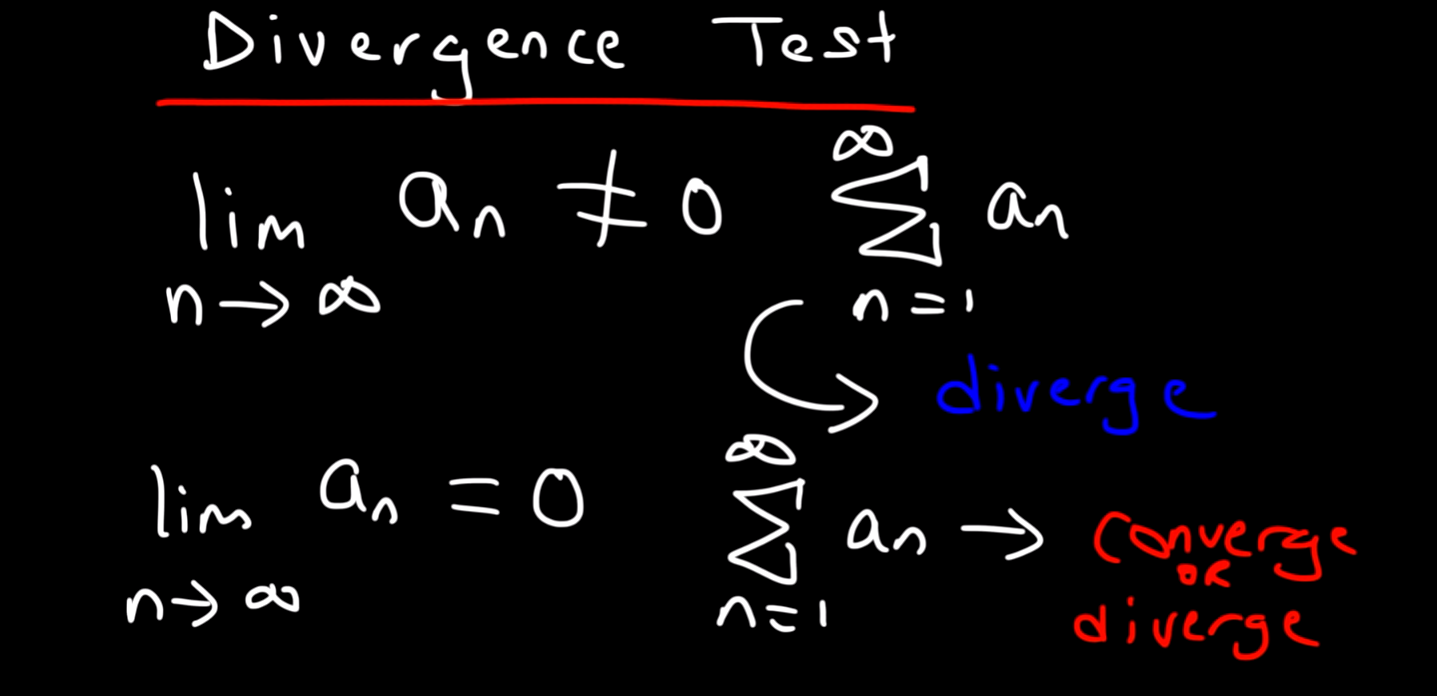 Divergence Test
lim aₙ ≠ 0 ∞ ∑ aₙ
n → ∞ n = 1
diverge
lim aₙ = 0 ∞ ∑ aₙ → converge
OR
n → ∞ n = 1 diverge